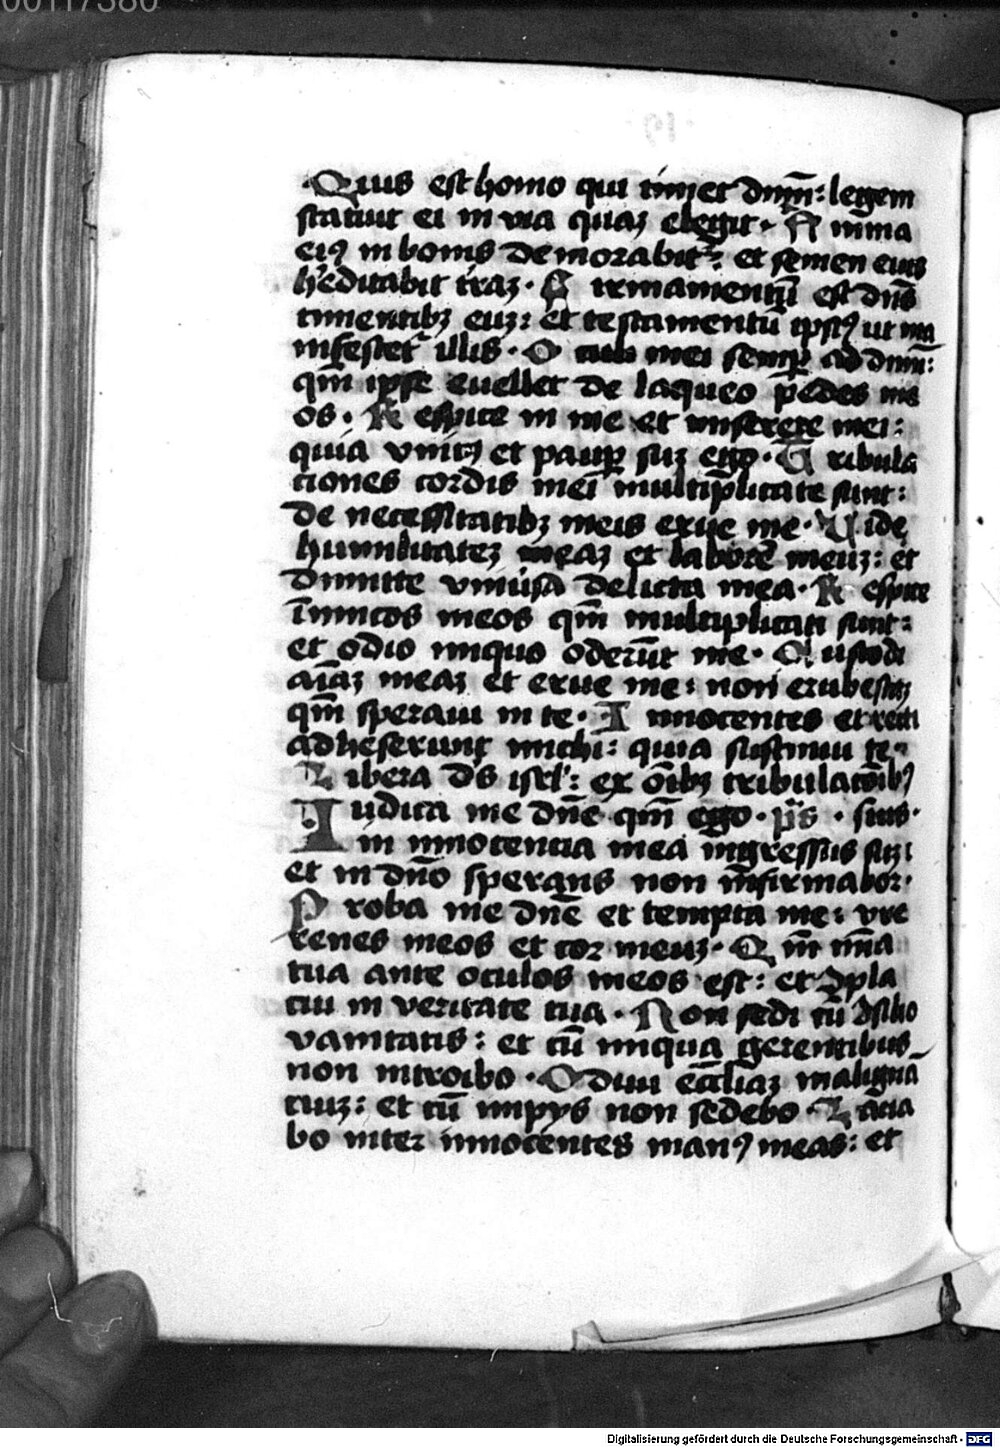 00117380
Quis est homo qui timet dnm̄: legem
statuit ei in via quaȝ elegit. Anima
eiꝰ in bonis demorabitr̃: et semen eius
h̓editabit traȝ. Firmamentū est dn̄s
timentibȝ euȝ: et testamentū ipsiꝰ ut ma
nifestet᷑ illis. Oculi mei semꝑ ad dnm̄:
qm̄ ipse euellet de laqueo pedes me
os. Respice in me et miserere mei:
quia vnicꝰ et pauꝑ suȝ ego. Tribula
tiones cordis mei multiplicate sunt:
de necessitatibȝ meis erue me. Vide
humilitateȝ meaȝ et laborē meuȝ: et
dimitte vniūsa delicta mea. Respice
īnimicos meos qm̄ multiplicati sunt:
et odio iniquo oderūt me. Custodi
aīaȝ meaȝ et erue me: non erubescaȝ
qm̄ speraui in te. Innocentes et recti
adheserunt michi: quia sustinui te.
Libera ds̄ isrl̓: ex oībȝ tribulacōibꝰ
Iudica me dnē qm̄ ego. ps̄. suis.
in innocentia mea ingressus suȝ:
et in dn̄o sperans non īnfirmabor.
Proba me dnē et tempta me: vre
renes meos et cor meuȝ. Qm̄ mīa
tua ante oculos meos est: et ꝯpla
cui in veritate tua. Non sedi cū ꝯsilio
vanitatis: et cū iniqua gerentibus
non introibo. Odiui eccliaȝ maligna
tiuȝ: et cū impys non sedebo. Laua
bo inter innocentes manꝰ meas: et
Digitalisierung gefördert durch die Deutsche Forschungsgemeinschaft - DFG